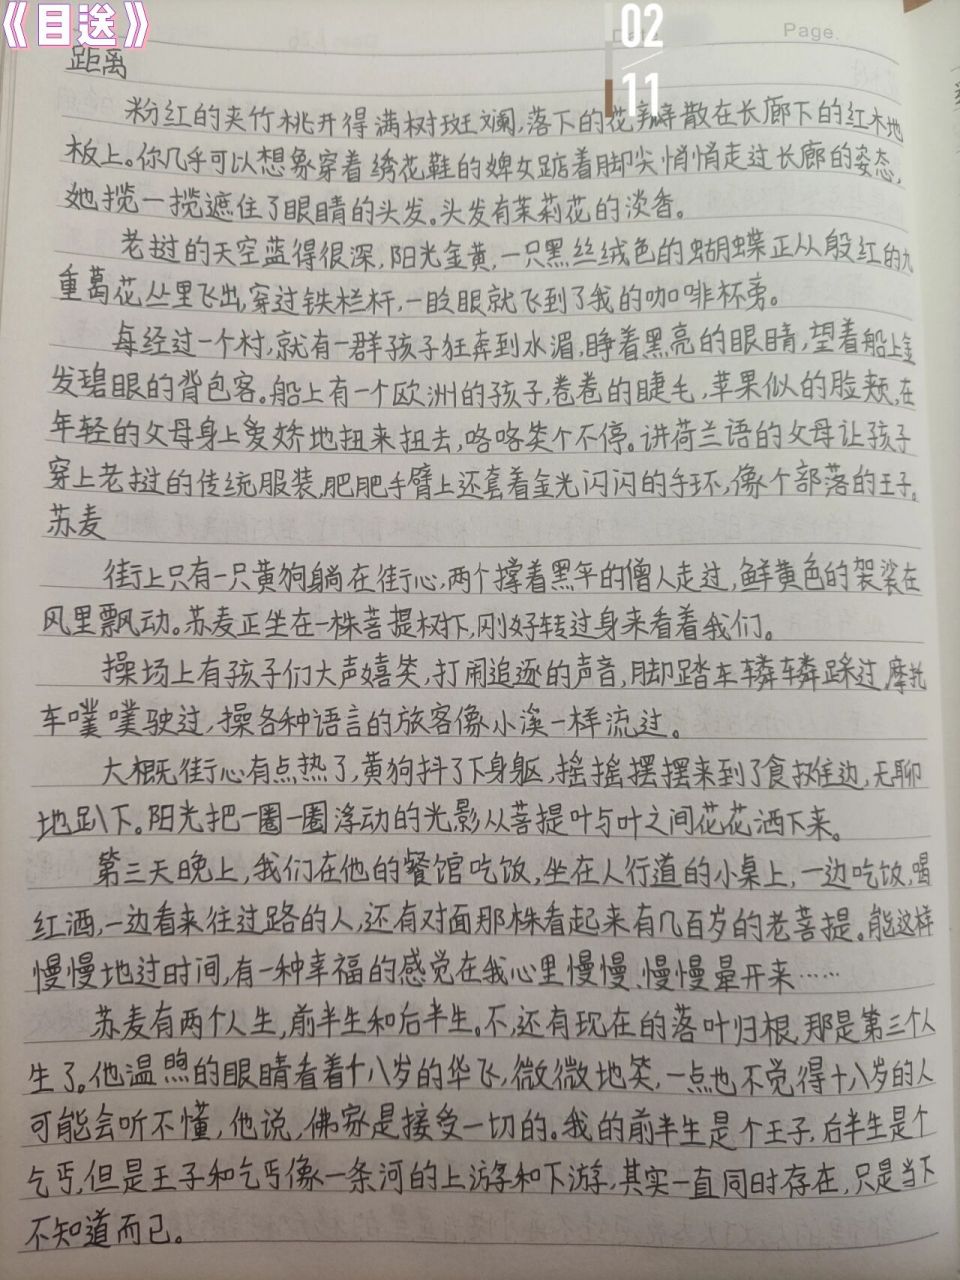 《目送》
02
11
Page.
距离
粉红的夹竹桃开得满树斑斓,落下的花瓣散在长廊下的红木地
板上。你几乎可以想象穿着绣花鞋的婢女踮着脚尖悄悄走过长廊的姿态,
她揽一揽遮住了眼睛的头发。头发有茉莉花的淡香。
老挝的天空蓝得很深,阳光金黄,一只黑丝绒色的蝴蝶正从殷红的九
重葛花丛里飞出,穿过铁栏杆,一眨眼就飞到了我的咖啡杯旁。
每经过一个村,就有一群孩子狂奔到水湄,睁着黑亮的眼睛,望着船上金
发碧眼的背包客。船上有一个欧洲的孩子,卷卷的睫毛,苹果似的脸颊,在
年轻的父母身上爱娇地扭来扭去,咯咯笑个不停。讲荷兰语的父母让孩子
穿上老挝的传统服装,肥肥手臂上还套着金光闪闪的手环,像个部落的王子。
苏麦
街上只有一只黄狗躺在街心,两个撑着黑伞的僧人走过,鲜黄色的袈裟在
风里飘动。苏麦正坐在一株菩提树下,刚好转过身来看着我们。
操场上有孩子们大声嬉笑,打闹追逐的声音,脚踏车辚辚踩过,摩托
车噗噗驶过,操各种语言的旅客像小溪一样流过。
大概街心有点热了,黄狗抖了下身躯,摇摇摆摆来到了食摊边,无聊
地趴下。阳光把一圈一圈浮动的光影从菩提叶与叶之间花花洒下来。
第三天晚上,我们在他的餐馆吃饭,坐在人行道的小桌上,一边吃饭,喝
红酒,一边看来往过路的人,还有对面那株看起来有几百岁的老菩提。能这样
慢慢地过时间,有一种幸福的感觉在我心里慢慢、慢慢晕开来……
苏麦有两个人生,前半生和后半生。不,还有现在的落叶归根,那是第三个人
生了。他温煦的眼睛看着十八岁的华飞,微微地笑,一点也不觉得十八岁的人
可能会听不懂,他说,佛家是接受一切的。我的前半生是个王子,后半生是个
乞丐,但是王子和乞丐像一条河的上游和下游,其实一直同时存在,只是当下
不知道而已。